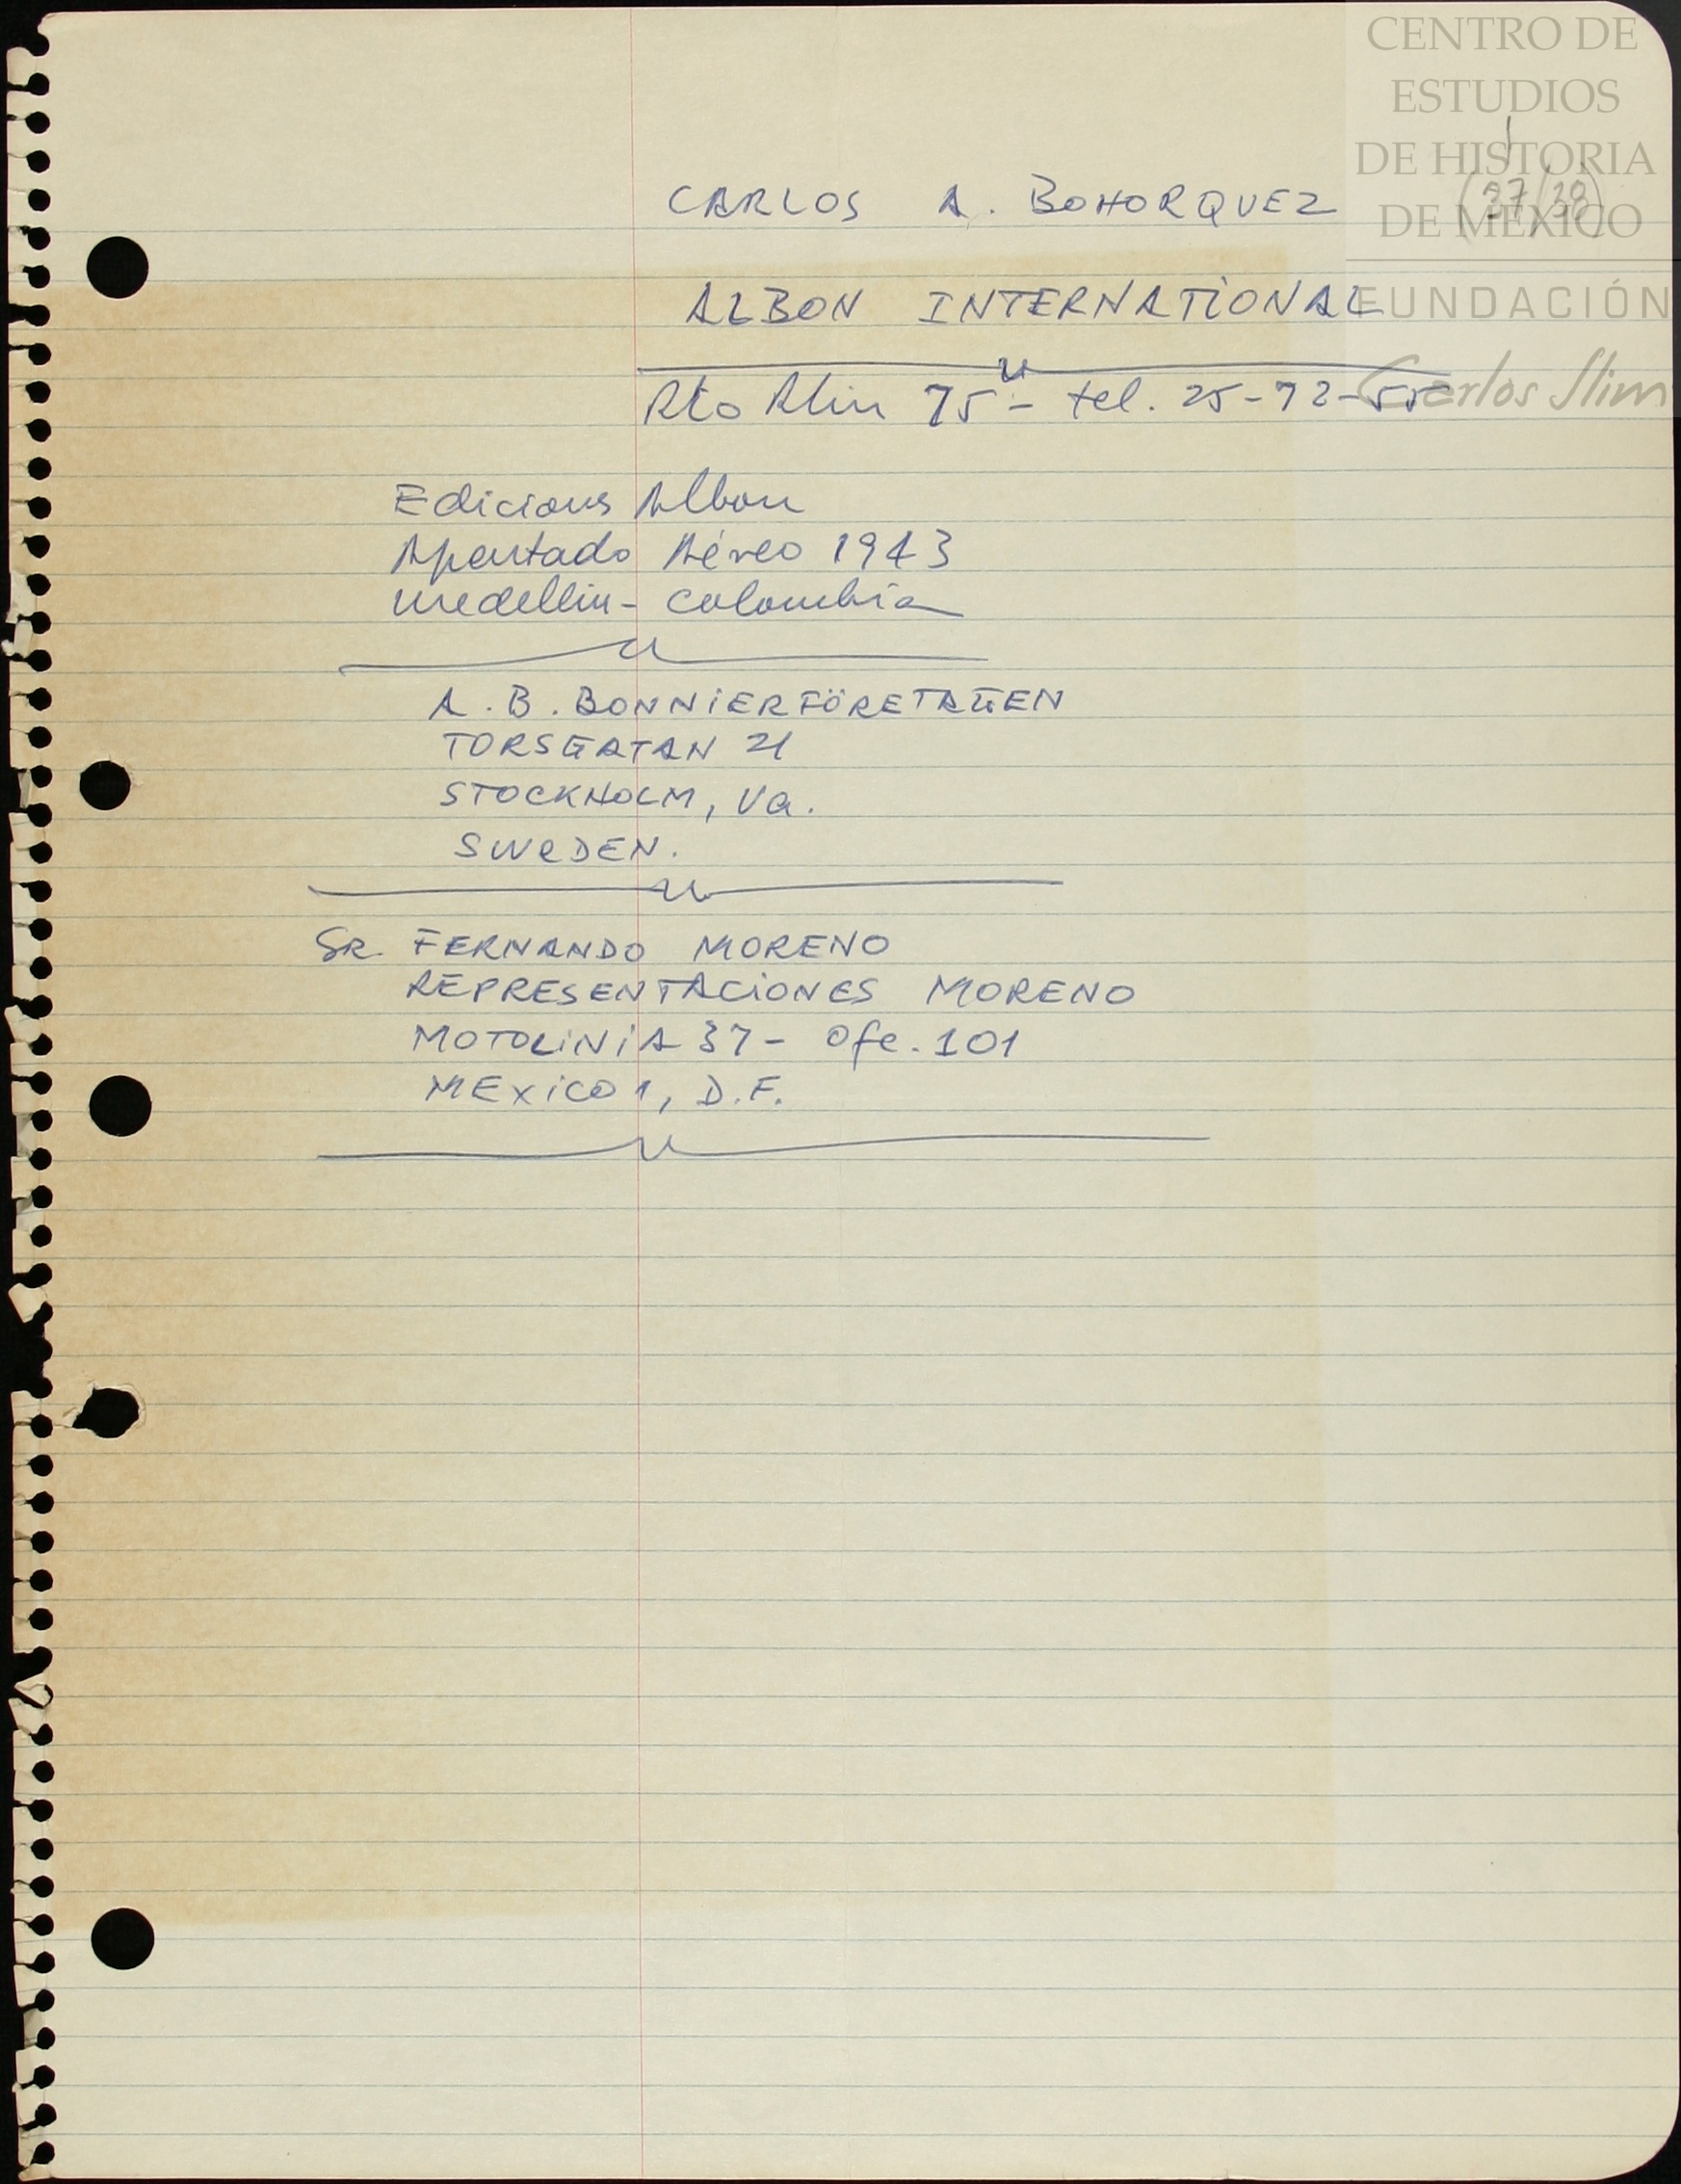 CENTRO DE
ESTUDIOS
DE HISTORIA
DE MÉXICO
FUNDACIÓN
Carlos Slim
(37/38)
CARLOS A. BOHORQUEZ
ALBON INTERNATIONAL
Río Rhin 75 - tel. 25-72-55
Ediciones Albon
Apartado Aéreo 1943
Medellin - Colombia
A. B. BONNIERFÖRETAGEN
TORSGATAN 21
STOCKHOLM, Va.
SWEDEN.
SR. FERNANDO MORENO
REPRESENTACIONES MORENO
MOTOLINIA 37 - Ofc. 101
MEXICO 1, D.F.